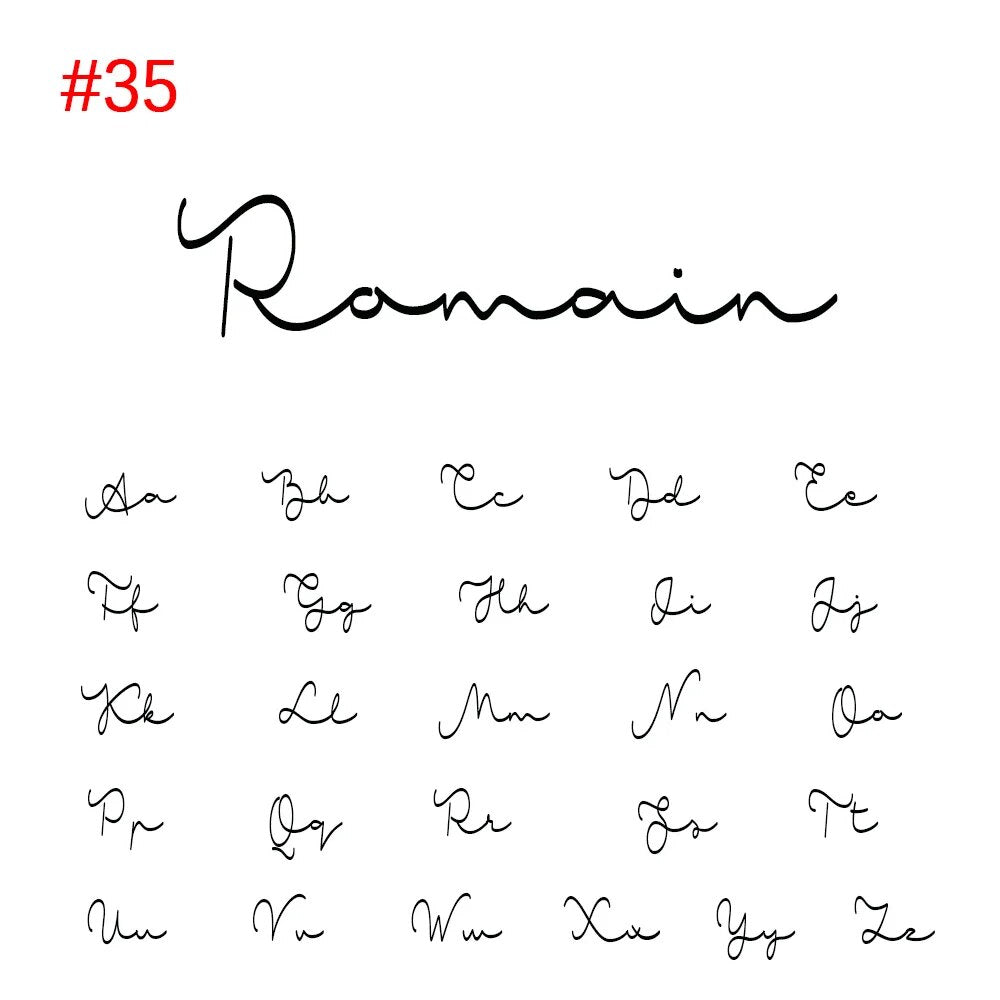 #35
Romain
Aa Bb Cc Dd Ee
Ff Gg Hh Ii Jj
Kk Ll Mm Nn Oo
Pp Qq Rr Ss Tt
Uu Vv Ww Xx Yy Zz